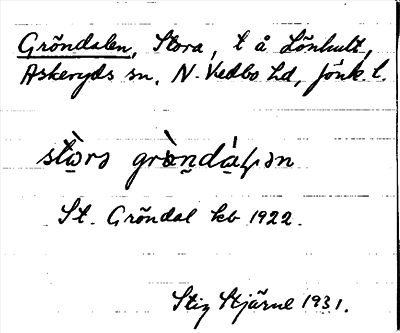 Gröndalen, Stora, t å Lönhult,
Askeryds sn, N. Vedbo hd, Jönk. l.
St. Gröndal kb 1922.
Stig Stjärne 1931.